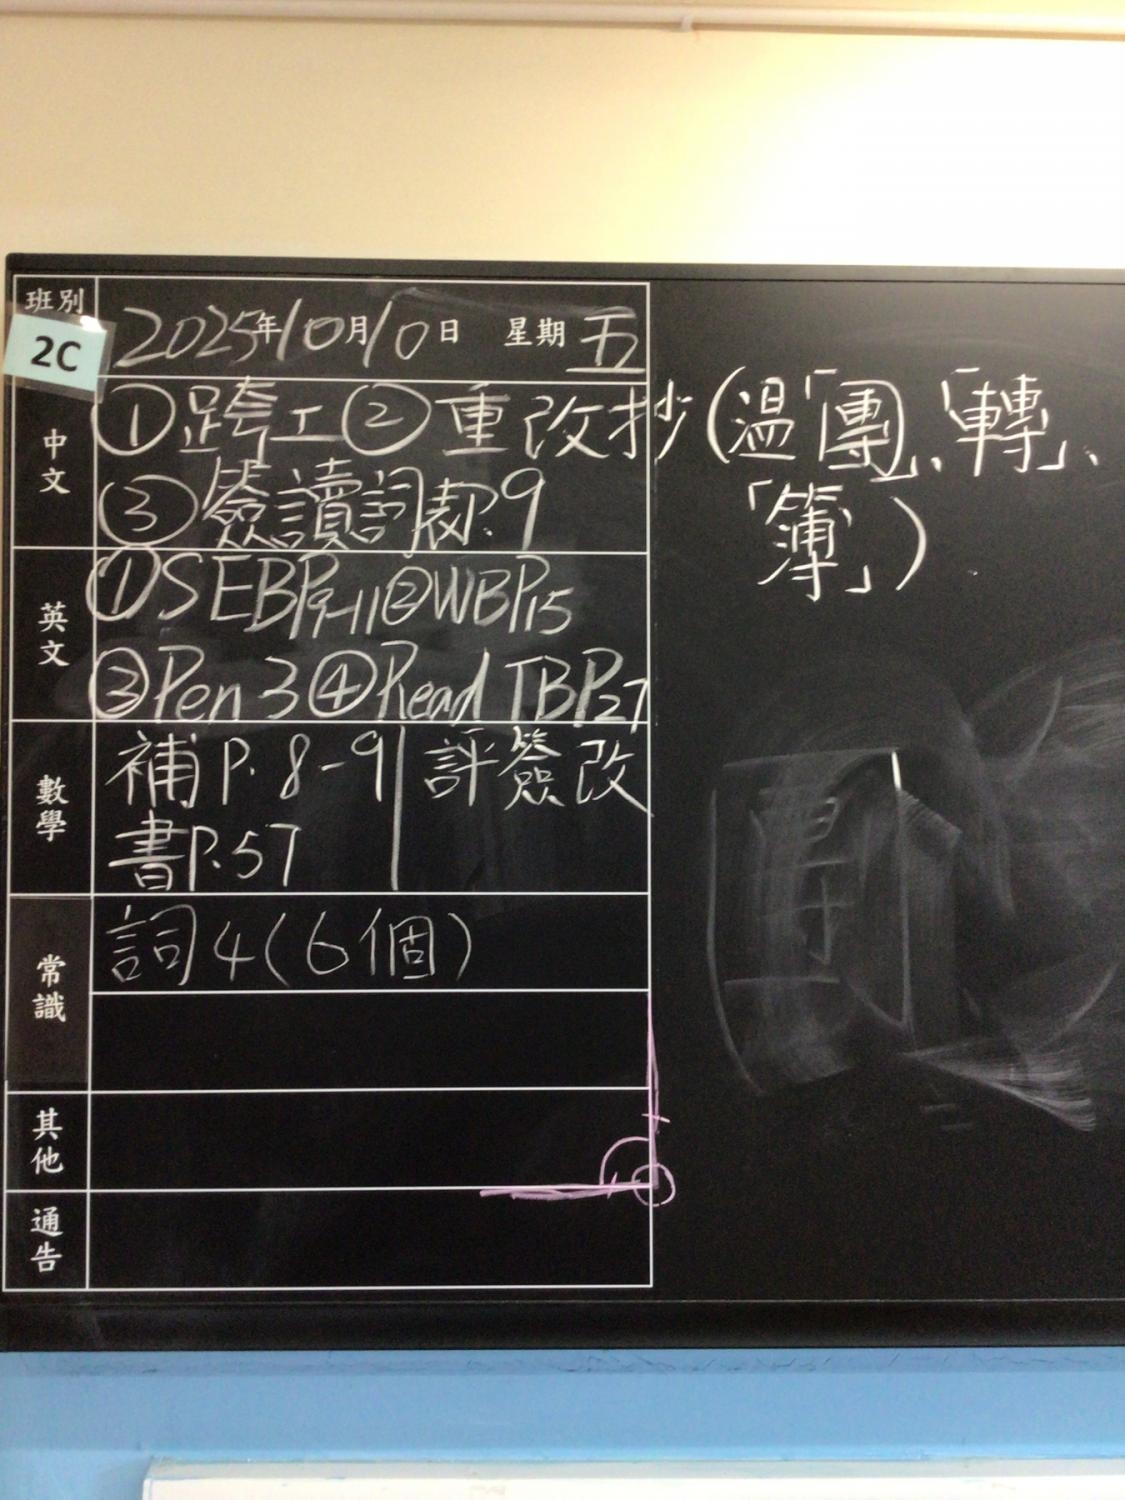 班別
2C
2025年10月10日 星期五
中文
①跨工②重改抄(温「團」、「轉」、
「簿」)
③簽讀詞表P.9
英文
①SEBP9-11②WBP15
③Pen 3④Read TBP27
數學
補P.8-9|評簽改
書P.57
常識
詞4(6個)
其他
通告